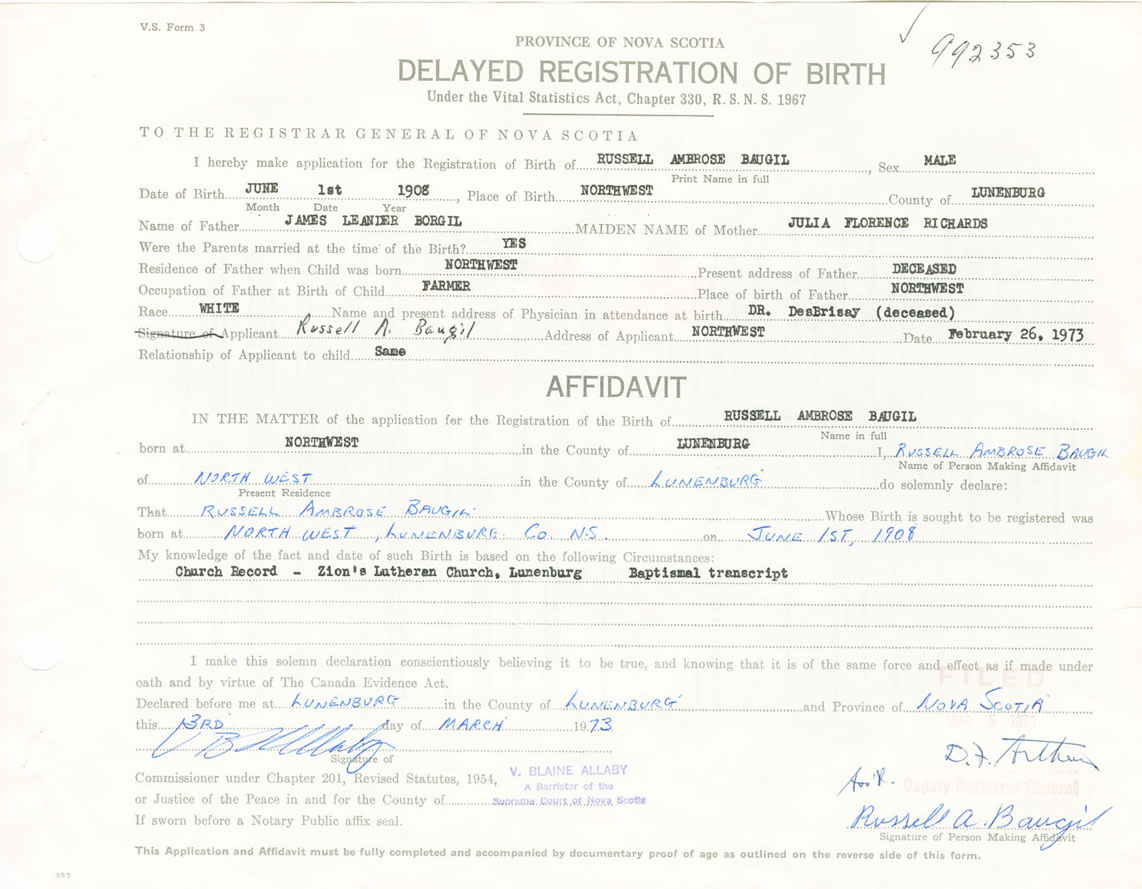 V.S. Form 3
992353
PROVINCE OF NOVA SCOTIA
DELAYED REGISTRATION OF BIRTH
Under the Vital Statistics Act, Chapter 330, R. S. N. S. 1967
TO THE REGISTRAR GENERAL OF NOVA SCOTIA
I hereby make application for the Registration of Birth of RUSSELL AMBROSE BAUGIL, Sex MALE
Print Name in full
Date of Birth JUNE 1st 1908, Place of Birth NORTHWEST County of LUNENBURG
Month Date Year
Name of Father JAMES LEANIER BORGIL MAIDEN NAME of Mother JULIA FLORENCE RICHARDS
Were the Parents married at the time of the Birth? YES
Residence of Father when Child was born NORTHWEST Present address of Father DECEASED
Occupation of Father at Birth of Child FARMER Place of birth of Father NORTHWEST
Race WHITE Name and present address of Physician in attendance at birth DR. DesBrisay (deceased)
Signature of Applicant Russell A. Baugil Address of Applicant NORTHWEST Date February 26, 1973
Relationship of Applicant to child Same
AFFIDAVIT
IN THE MATTER of the application for the Registration of the Birth of RUSSELL AMBROSE BAUGIL
Name in full
born at NORTHWEST in the County of LUNENBURG I, RUSSELL AMBROSE BAUGIL
Name of Person Making Affidavit
of NORTH WEST in the County of LUNENBURG do solemnly declare:
Present Residence
That RUSSELL AMBROSE BAUGIL Whose Birth is sought to be registered was
born at NORTH WEST, LUNENBURG Co. N.S. on JUNE 1ST, 1908
My knowledge of the fact and date of such Birth is based on the following Circumstances:
Church Record - Zion's Lutheran Church, Lunenburg Baptismal transcript
I make this solemn declaration conscientiously believing it to be true, and knowing that it is of the same force and effect as if made under
oath and by virtue of The Canada Evidence Act.
FILED
Declared before me at LUNENBURG in the County of LUNENBURG and Province of NOVA SCOTIA
this 3RD day of MARCH 1973
1973
Signature of
D. F. Arthur
Commissioner under Chapter 201, Revised Statutes, 1954,
V. BLAINE ALLABY
A Barrister of the
Supreme Court of Nova Scotia
Deputy Registrar General
or Justice of the Peace in and for the County of
Russell A. Baugil
If sworn before a Notary Public affix seal.
Signature of Person Making Affidavit
This Application and Affidavit must be fully completed and accompanied by documentary proof of age as outlined on the reverse side of this form.
385